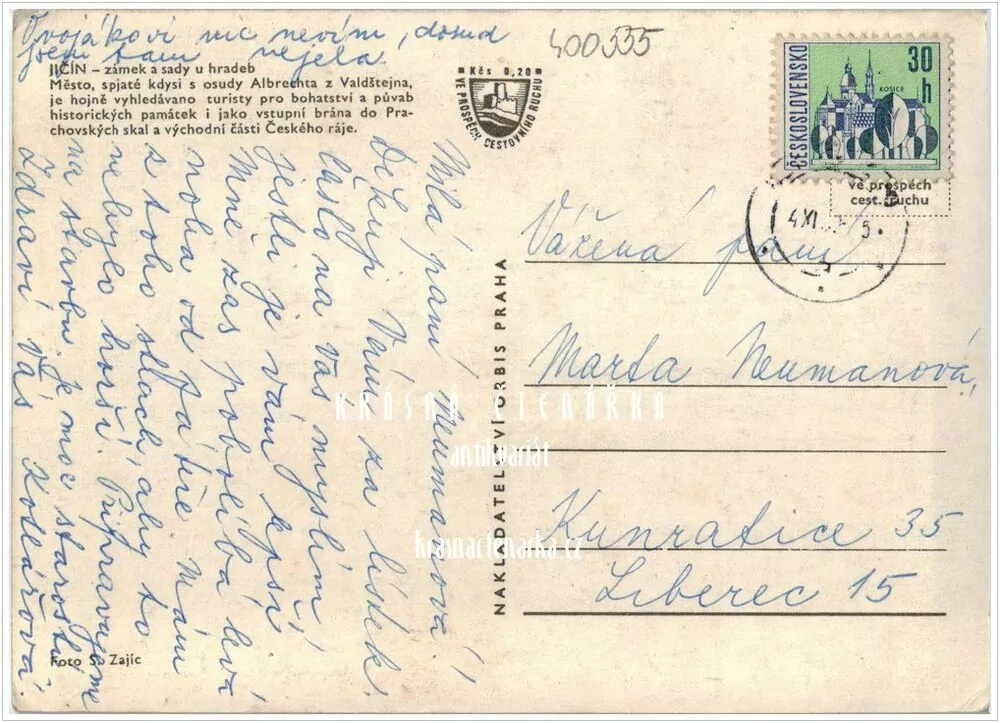 Dvojákovi nic nevím, dosud
jsem tam nejela.
400555
JIČÍN – zámek a sady u hradeb
Město, spjaté kdysi s osudy Albrechta z Valdštejna,
je hojně vyhledáváno turisty pro bohatství a půvab
historických památek i jako vstupní brána do Pra-
chovských skal a východní části Českého ráje.
Kčs 0,20
VE PROSPĚCH CESTOVNÍHO RUCHU
Milá paní Neumanová!
Děkuji Vám za lístek,
často na Vás myslím
jestli je vám lepší
Mne zas pobolíba levá
noha od patře mám
z toho strach, aby to
nebylo horší. Připravujeme
na stavbu. Je moc starostí
Zdraví Vás Kollářová.
Foto S. Zajíc
NAKLADATELSTVÍ ORBIS PRAHA
ČESKOSLOVENSKO
30
h
KOŠICE
ve prospěch
cest. ruchu
4 XI
5
Vážená paní
Marta Neumanová,
Kunratice 35
Liberec 15
KRÁSNÁ ČTENÁŘKA
antikvariát
krasnactenarka.cz